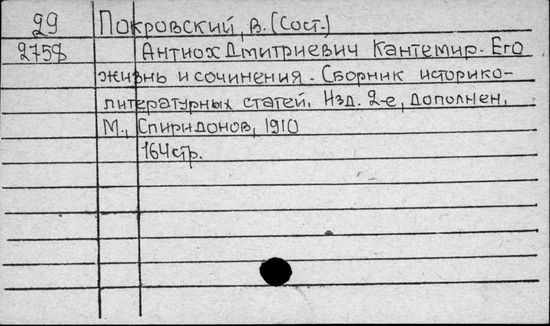 29 Покровский, В. (Сост.)
2758 Антиох Дмитриевич Кантемир. Его
жизнь и сочинения. Сборник историко-
литературных статей. Изд. 2-е, дополнен,
М., Спиридонов, 1910
164стр.